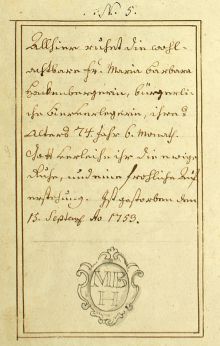 No. 5.
Allhier ruhet die wohl-
achtbare Fr. Maria Barbara
Henkenbergerin, bürgerli-
che Bierverlegerin, ihres
Alters 74 Jahr 6. Monath.
Gott verleihe ihr die ewige
Ruhe, und eine frohliche Auf
erstehung. Ist gestorben den
15. Septemb. Ao 1753.
MB
H